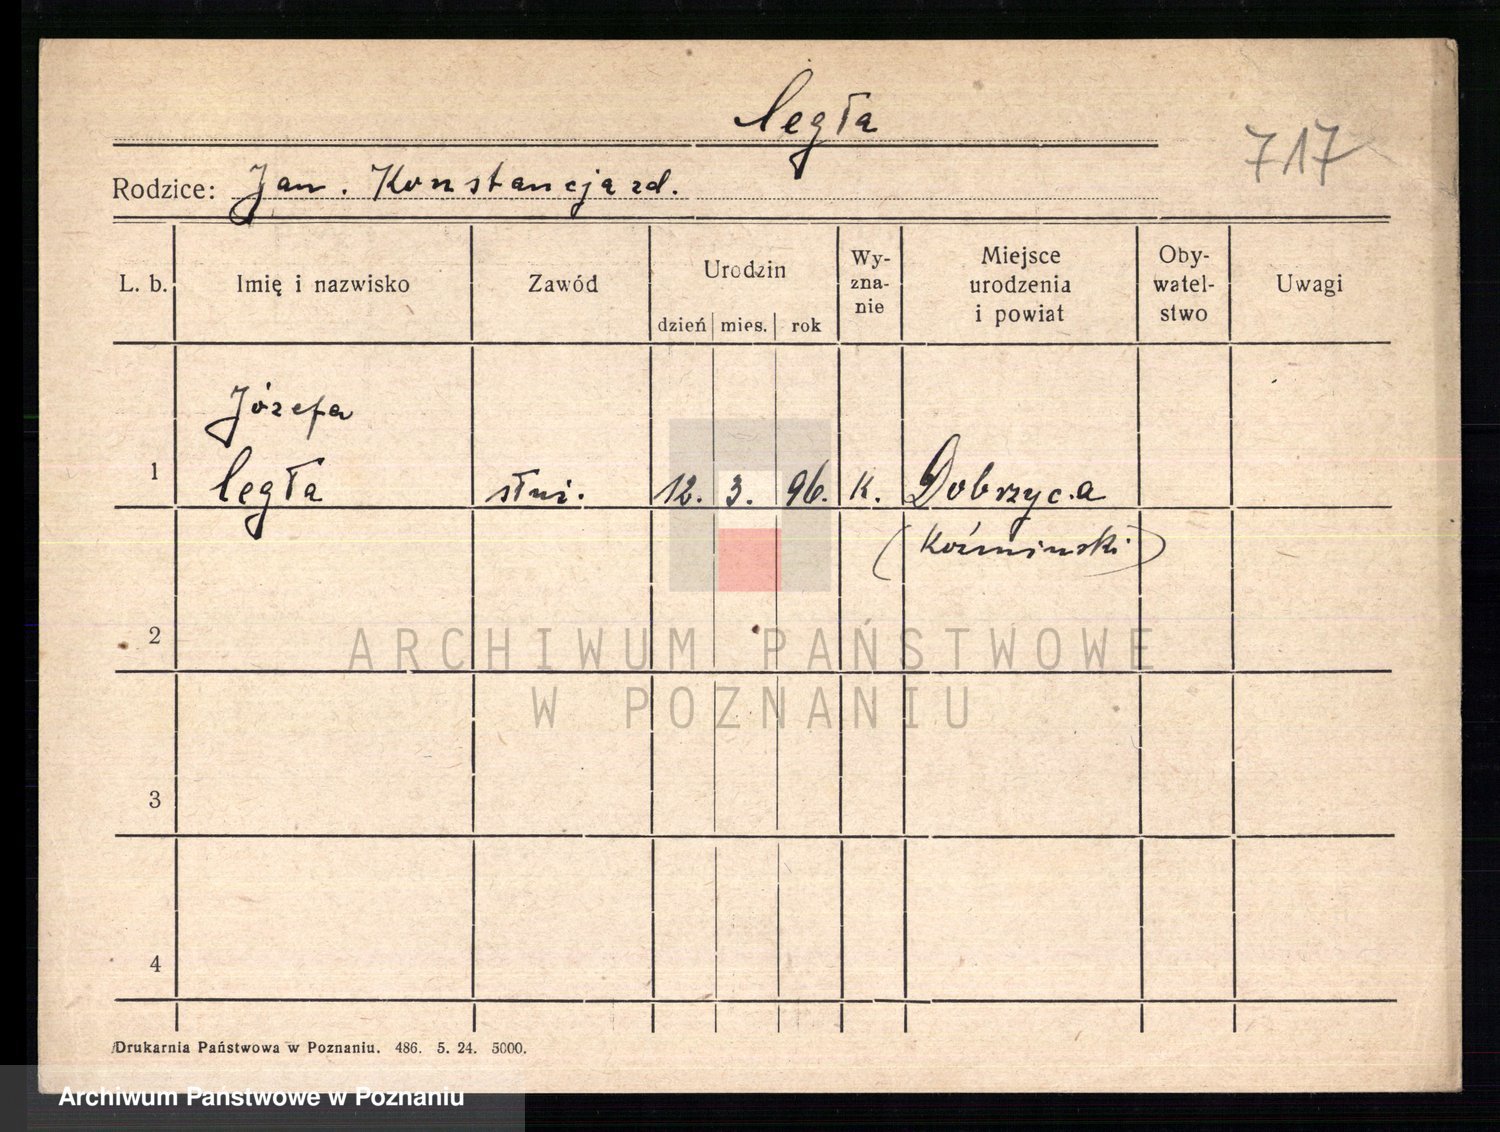 Legła
717
Rodzice: Jan. Konstancja zd.
L. b.
Imię i nazwisko
Zawód
Urodzin
dzień mies. rok
Wy-
zna-
nie
Miejsce
urodzenia
i powiat
Oby-
watel-
stwo
Uwagi
Józefa
1 Legła służ. 12. 3. 96. K. Dobrzyca
(Koźminski)
2
3
4
ARCHIWUM PAŃSTWOWE
W POZNANIU
Drukarnia Państwowa w Poznaniu. 486. 5. 24. 5000.
Archiwum Państwowe w Poznaniu